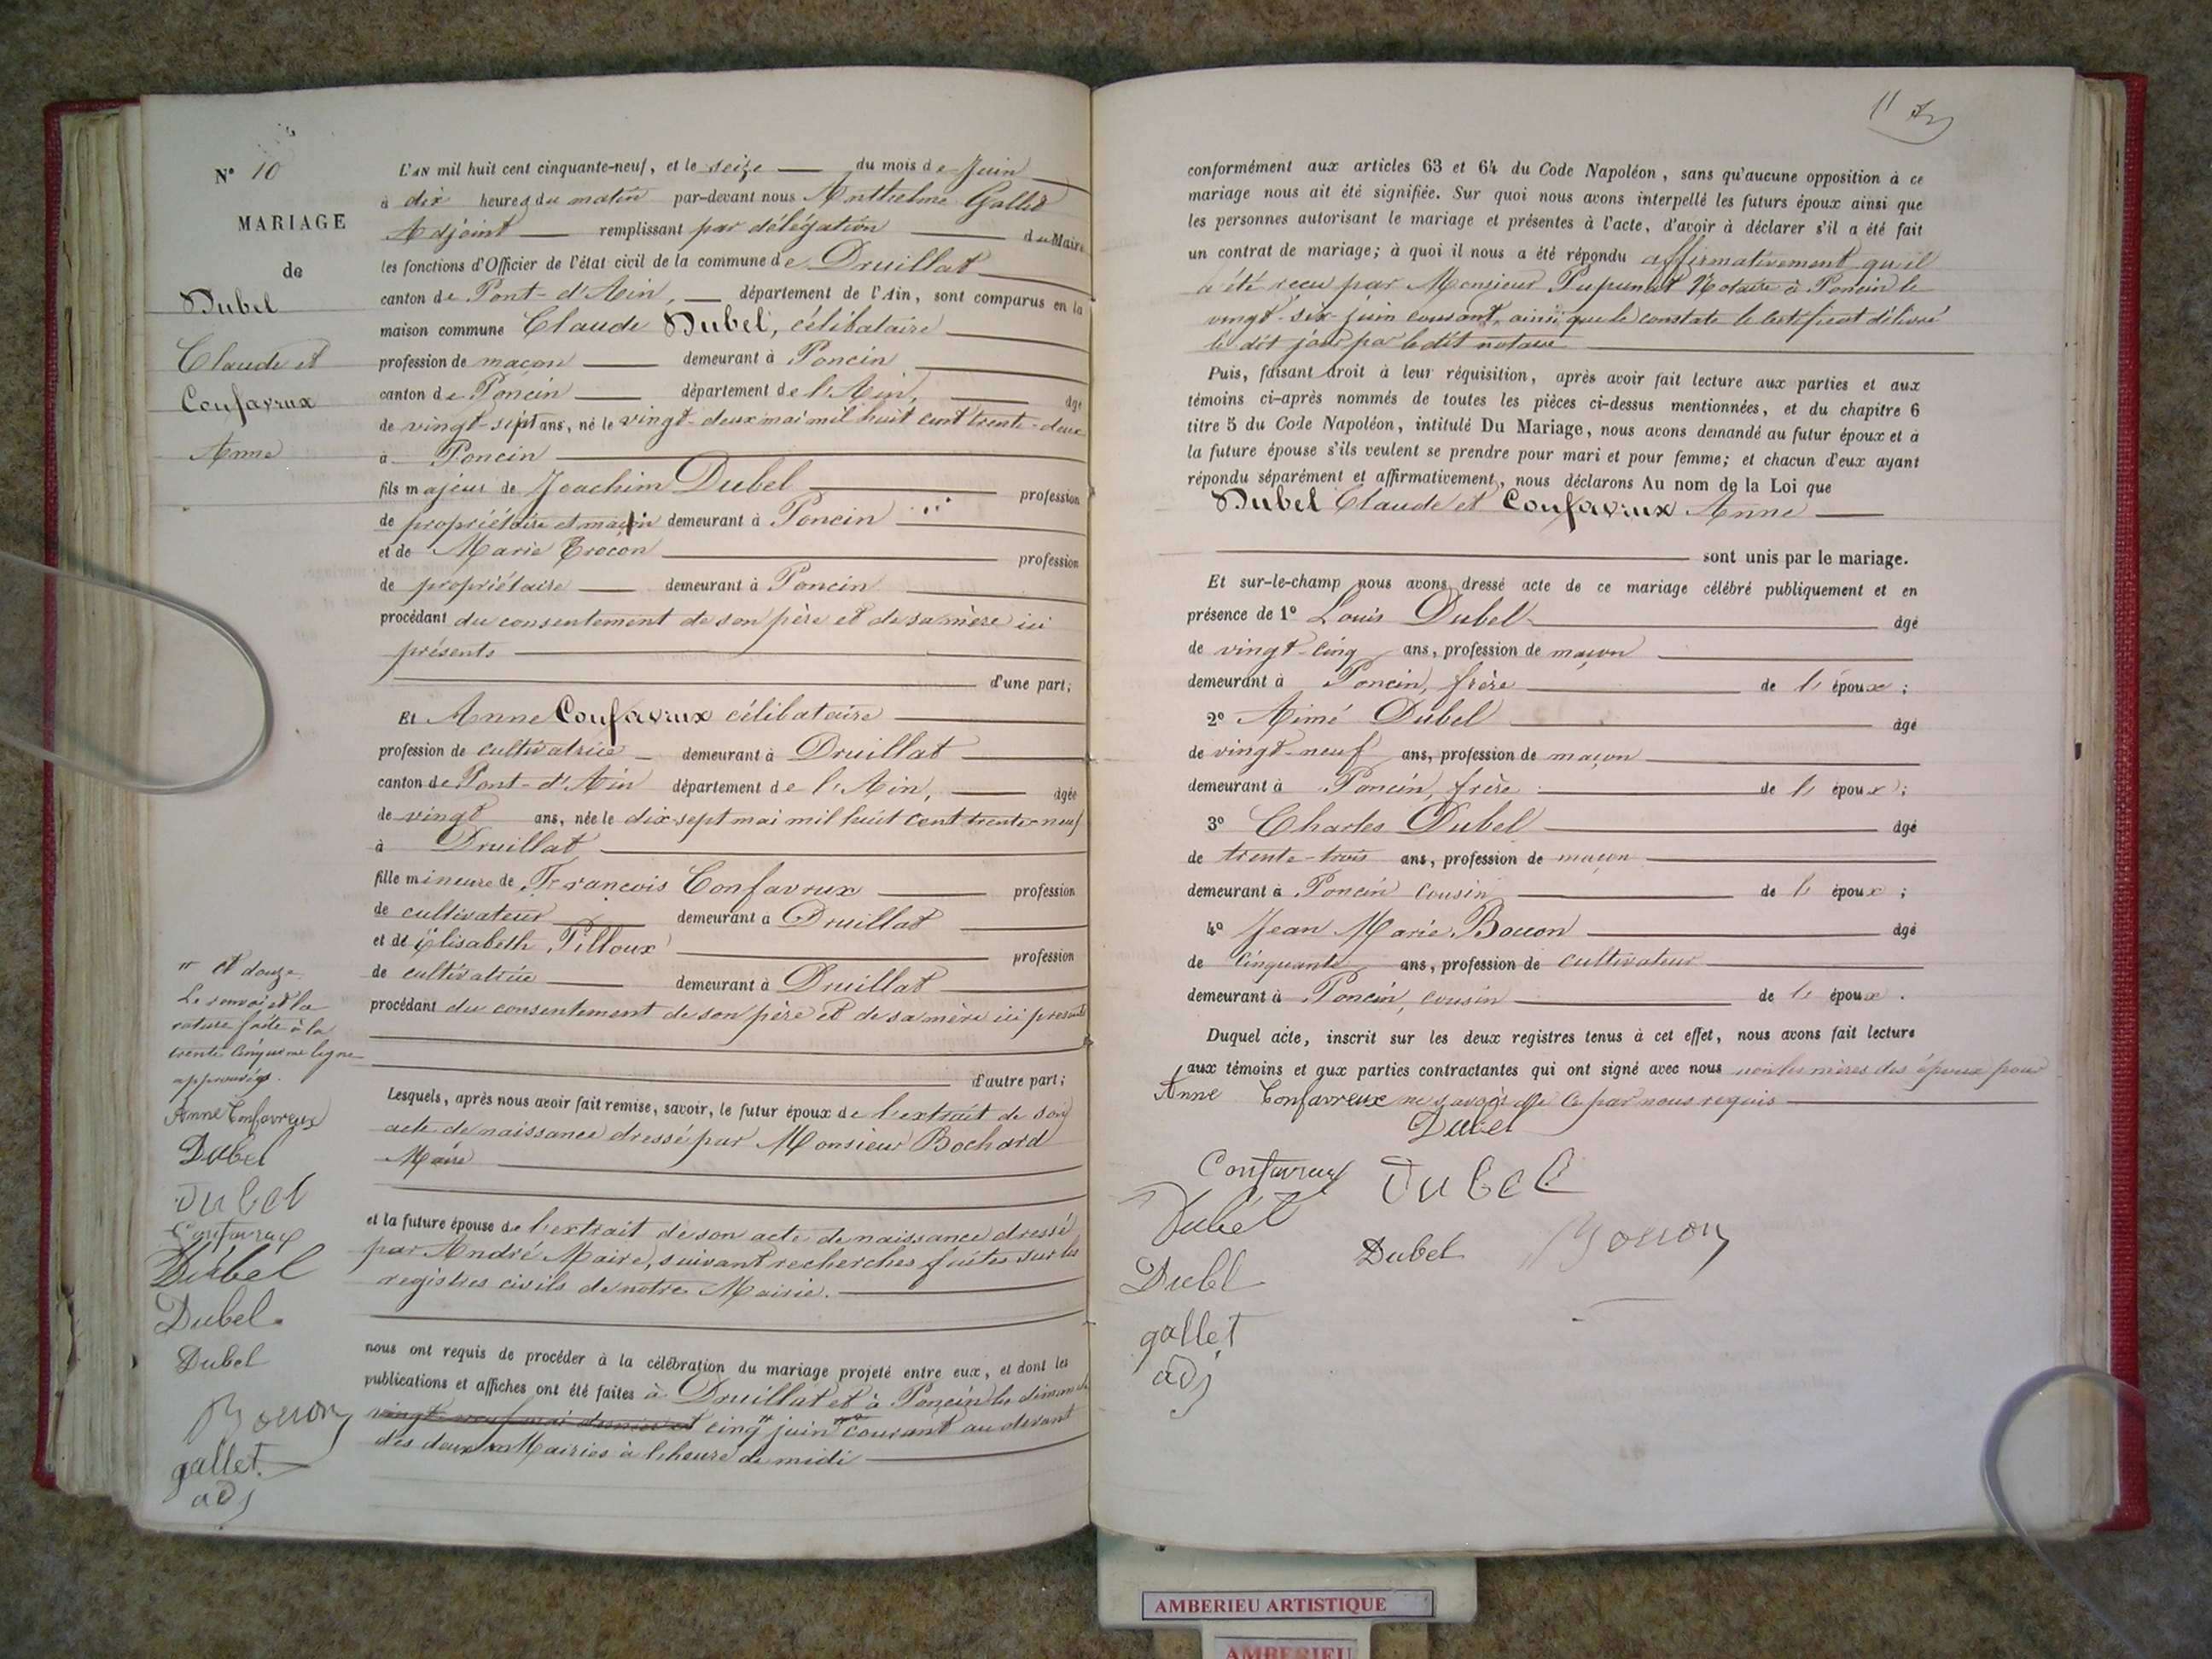 N° 10
MARIAGE
de
Dubel
Claude et
Confavrux
Anne
L'AN mil huit cent cinquante-neuf, et le seize du mois de Juin
à dix heures du matin par-devant nous Anthelme Gallet
Adjoint remplissant par délégation du Maire
les fonctions d'Officier de l'état civil de la commune de Druillat
canton de Pont-d'Ain, département de l'Ain, sont comparus en la
maison commune Claude Dubel, célibataire
profession de maçon demeurant à Poncin
canton de Poncin département de l'Ain, âgé
de vingt-sept ans, né le vingt-deux mai mil huit cent trente-deux
à Poncin
fils majeur de Joachim Dubel profession
de propriétaire et maçon demeurant à Poncin
et de Marie Trocon profession
de propriétaire demeurant à Poncin
procédant du consentement de son père et de sa mère ici
présents
d'une part;
Et Anne Confavrux célibataire
profession de cultivatrice demeurant à Druillat
canton de Pont-d'Ain département de l'Ain, âgée
de vingt ans, née le dix sept mai mil huit cent trente-neuf
à Druillat
fille mineure de François Confavrux profession
de cultivateur demeurant à Druillat
et de Élisabeth Pilloux profession
de cultivatrice demeurant à Druillat
procédant du consentement de son père et de sa mère ici présents
d'autre part;
Lesquels, après nous avoir fait remise, savoir, le futur époux de l'extrait de son
acte de naissance dressé par Monsieur Bochard
Maire
et la future épouse de l'extrait de son acte de naissance dressé
par André Maire, suivant recherches faites sur les
registres civils de notre Mairie.
nous ont requis de procéder à la célébration du mariage projeté entre eux, et dont les
publications et affiches ont été faites à Druillat et à Poncin les dimanches
vingt-neuf mai dernier et cinq juin courant au devant
des deux Mairies à l'heure de midi
et douze
Le renvoi et la
rature faite à la
trente cinquième ligne
approuvés.
Anne Confavreux
Dubel
Dubel
Confavrux
Dubel
Dubel
Dubel
Bocon
gallet
adj
11
conformément aux articles 63 et 64 du Code Napoléon, sans qu'aucune opposition à ce
mariage nous ait été signifiée. Sur quoi nous avons interpellé les futurs époux ainsi que
les personnes autorisant le mariage et présentes à l'acte, d'avoir à déclarer s'il a été fait
un contrat de mariage; à quoi il nous a été répondu affirmativement qu'il
a été reçu par Monsieur Pupunat Notaire à Poncin le
vingt-six juin courant, ainsi que le constate le certificat délivré
le dit jour par le dit notaire
Puis, faisant droit à leur réquisition, après avoir fait lecture aux parties et aux
témoins ci-après nommés de toutes les pièces ci-dessus mentionnées, et du chapitre 6
titre 5 du Code Napoléon, intitulé Du Mariage, nous avons demandé au futur époux et à
la future épouse s'ils veulent se prendre pour mari et pour femme; et chacun d'eux ayant
répondu séparément et affirmativement, nous déclarons Au nom de la Loi que
Dubel Claude et Confavrux Anne
sont unis par le mariage.
Et sur-le-champ nous avons dressé acte de ce mariage célébré publiquement et en
présence de 1° Louis Dubel âgé
de vingt-cinq ans, profession de maçon
demeurant à Poncin, frère de l'époux;
2° Aimé Dubel âgé
de vingt-neuf ans, profession de maçon
demeurant à Poncin, frère de l'époux;
3° Charles Dubel âgé
de trente-trois ans, profession de maçon
demeurant à Poncin cousin de l'époux;
4° Jean Marie Bocon âgé
de cinquante ans, profession de cultivateur
demeurant à Poncin, cousin de l'époux.
Duquel acte, inscrit sur les deux registres tenus à cet effet, nous avons fait lecture
aux témoins et aux parties contractantes qui ont signé avec nous non les mères des époux pour
ne savoir de ce par nous requis
Anne Confavreux
Dubel
Confavrux Dubel
Dubel
Dubel Bocon
Dubel
gallet
adj
AMBERIEU ARTISTIQUE
AMBERIEU